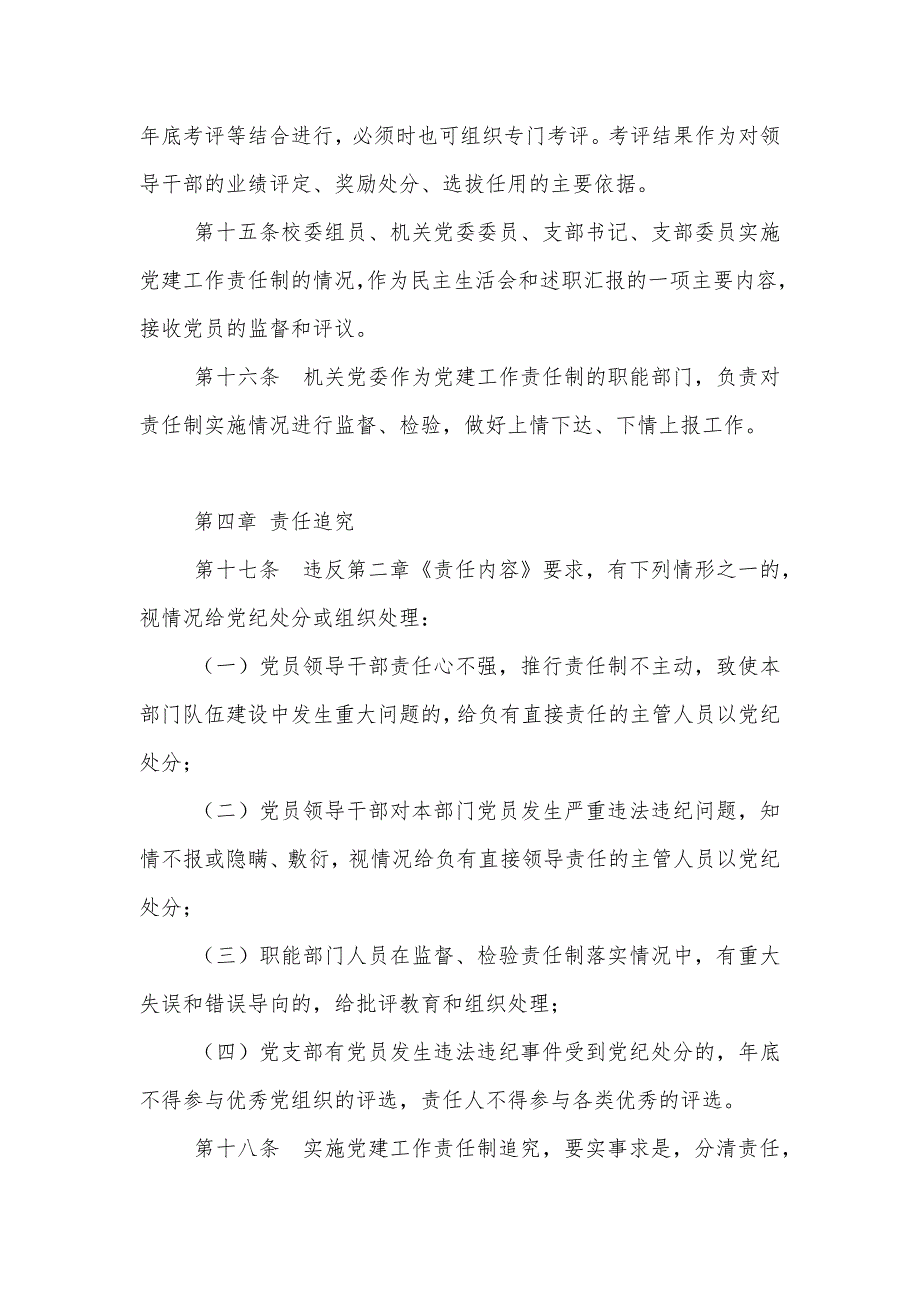 年底考评等结合进行，必须时也可组织专门考评。考评结果作为对领
导干部的业绩评定、奖励处分、选拔任用的主要依据。
第十五条校委组员、机关党委委员、支部书记、支部委员实施
党建工作责任制的情况，作为民主生活会和述职汇报的一项主要内容，
接收党员的监督和评议。
第十六条　机关党委作为党建工作责任制的职能部门，负责对
责任制实施情况进行监督、检验，做好上情下达、下情上报工作。
第四章 责任追究
第十七条　违反第二章《责任内容》要求，有下列情形之一的，
视情况给党纪处分或组织处理：
（一）党员领导干部责任心不强，推行责任制不主动，致使本
部门队伍建设中发生重大问题的，给负有直接责任的主管人员以党纪
处分；
（二）党员领导干部对本部门党员发生严重违法违纪问题，知
情不报或隐瞒、敷衍，视情况给负有直接领导责任的主管人员以党纪
处分；
（三）职能部门人员在监督、检验责任制落实情况中，有重大
失误和错误导向的，给批评教育和组织处理；
（四）党支部有党员发生违法违纪事件受到党纪处分的，年底
不得参与优秀党组织的评选，责任人不得参与各类优秀的评选。
第十八条　实施党建工作责任制追究，要实事求是，分清责任，